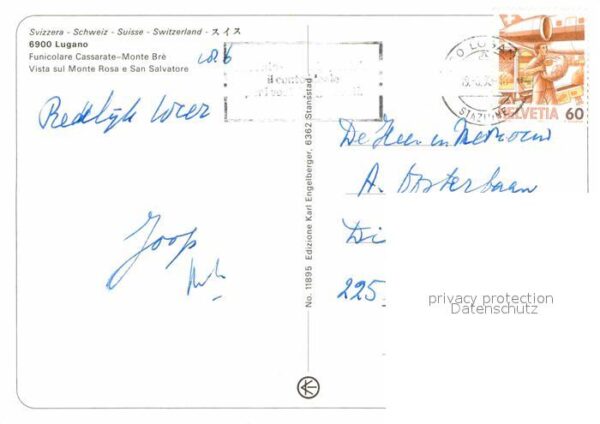 Svizzera - Schweiz - Suisse - Switzerland - スイス
6900 Lugano
Funicolare Cassarate–Monte Brè
Vista sul Monte Rosa e San Salvatore
Redelijk weer
Joop
No. 11895 Edizione Karl Engelberger, 6362 Stansstad
il contor
STAZIONE
HELVETIA 60
De Heer en Mevrouw
A. Oosterbaan
Di
225
privacy protection
Datenschutz